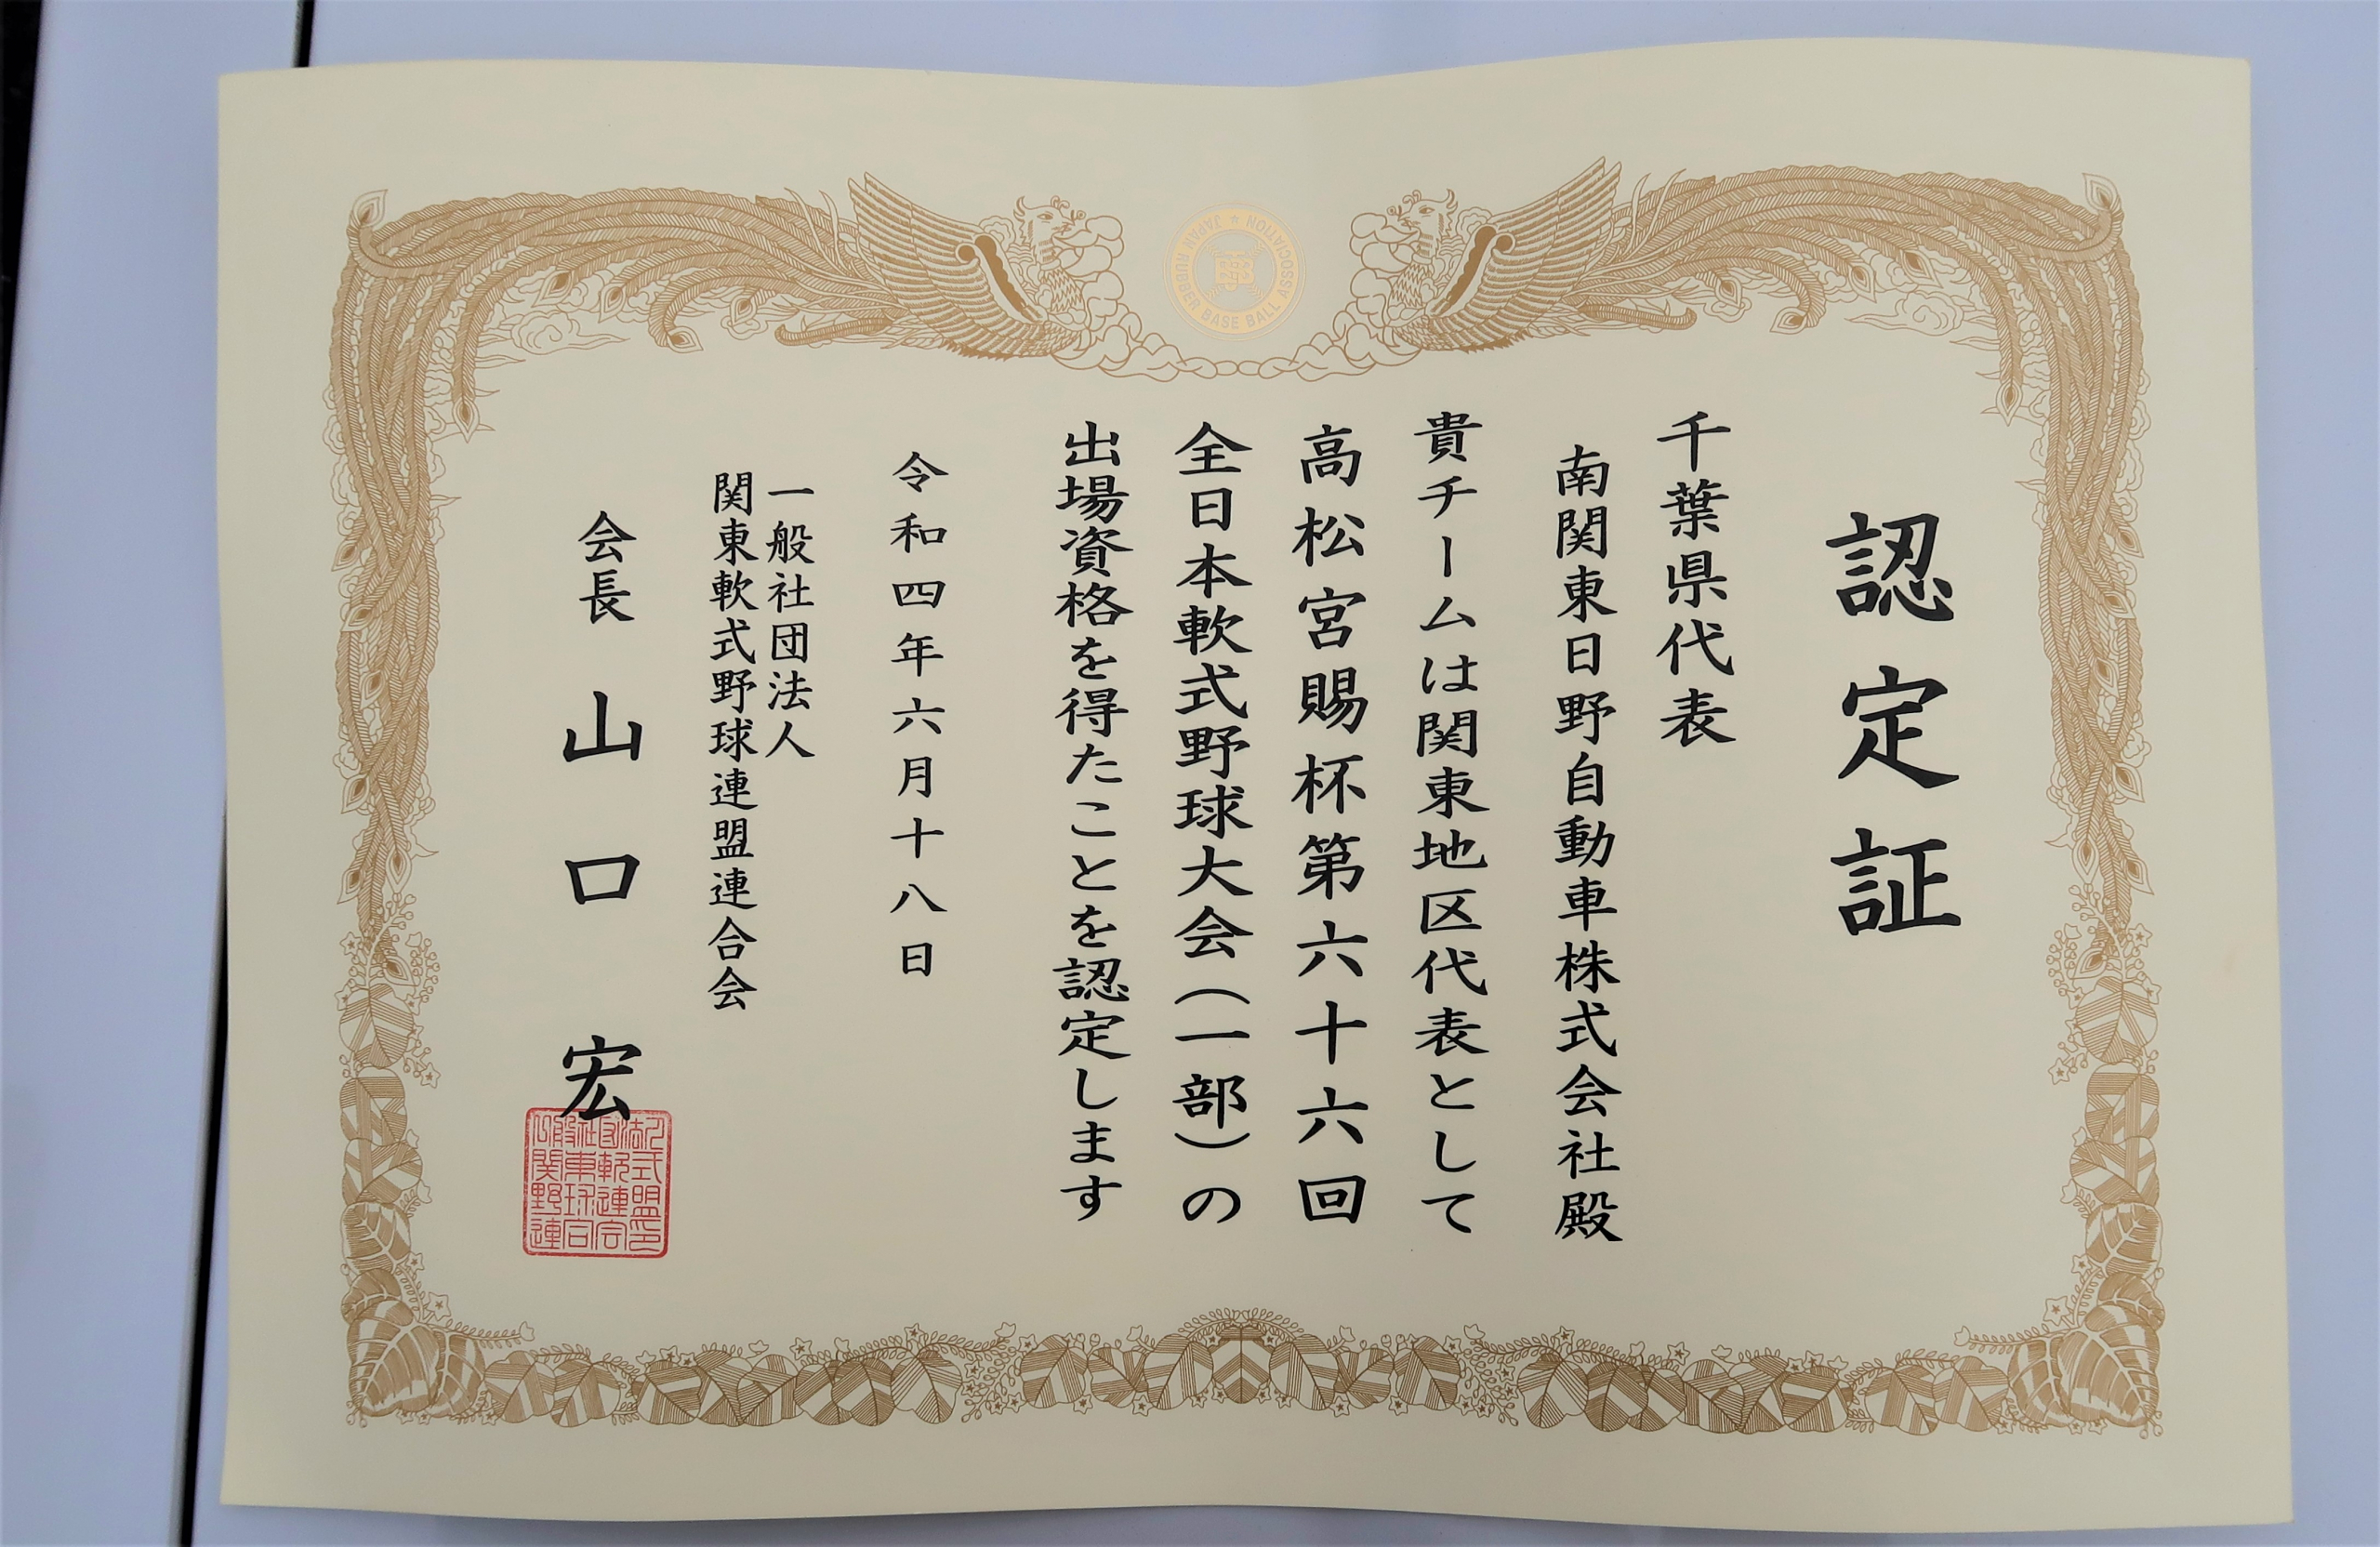 認定証
千葉県代表
南関東日野自動車株式会社殿
貴チームは関東地区代表として
高松宮賜杯第六十六回
全日本軟式野球大会(一部)の
出場資格を得たことを認定します
令和四年六月十八日
一般社団法人
関東軟式野球連盟連合会
会長 山口宏
JAPAN RUBBER BASE BALL ASSOCIATION